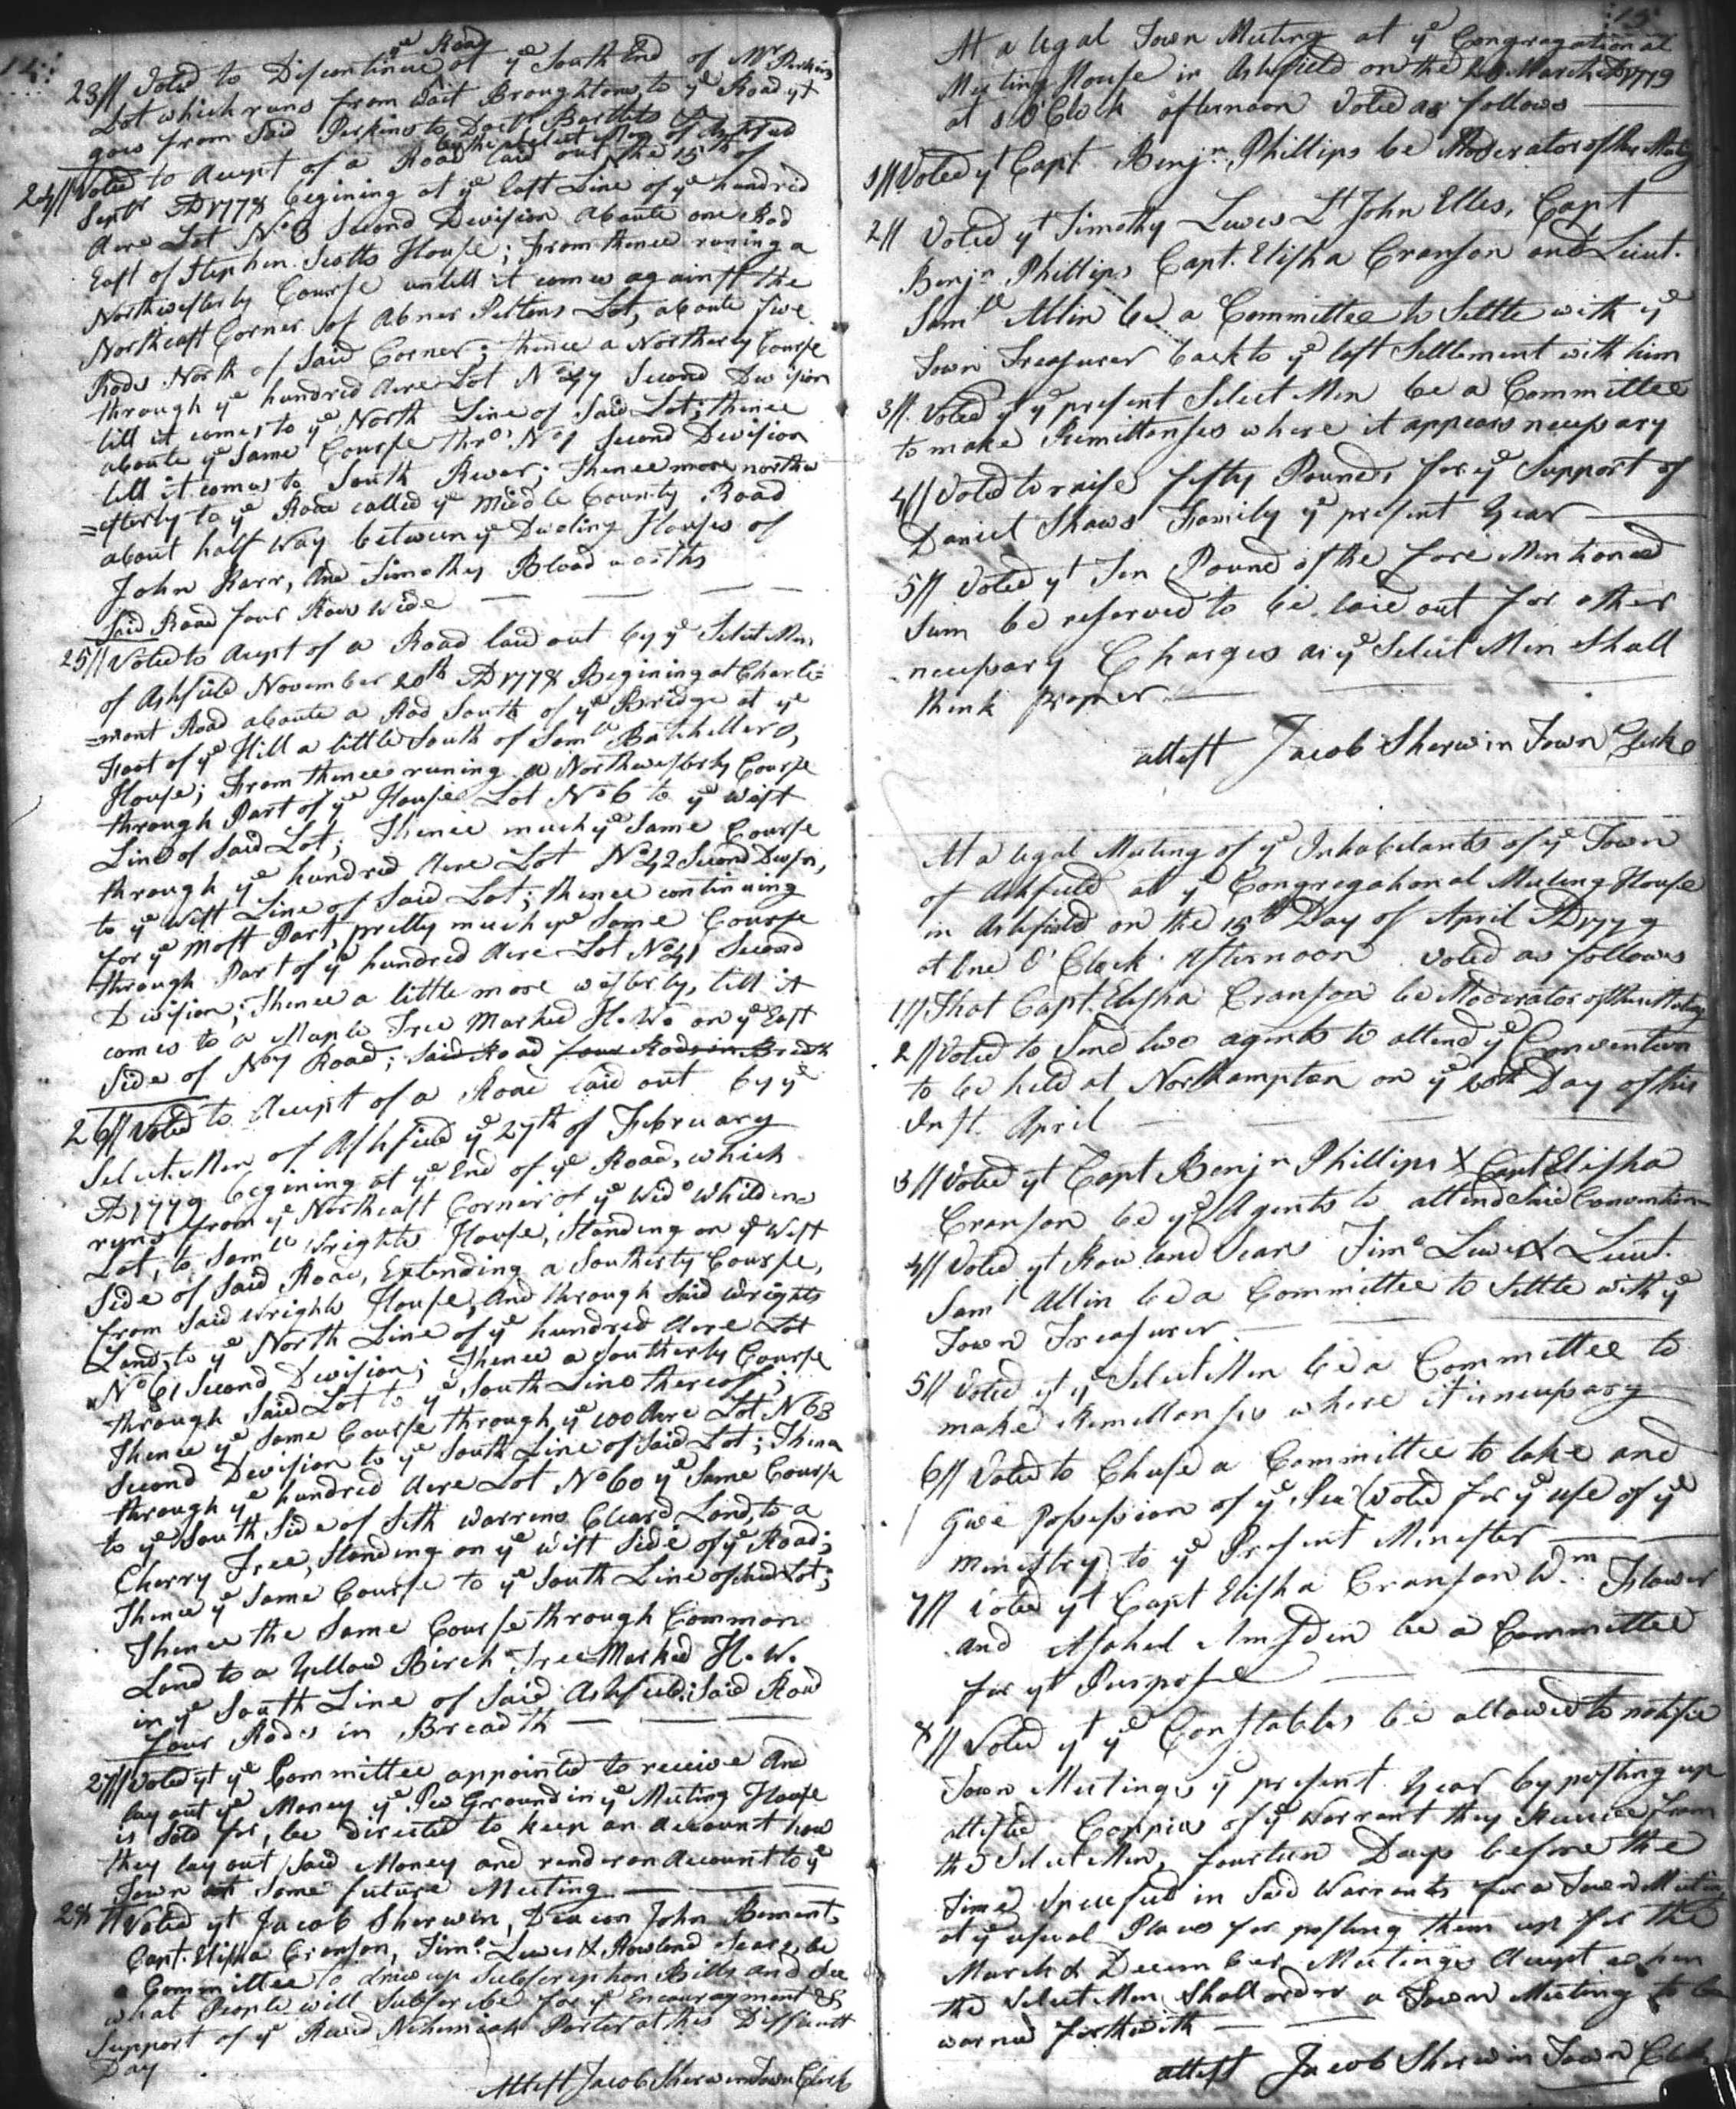 23// Voted to Discontinue ye Road at ye South End of Mr Perkins
Lot which runs from Wait Broughtons, to ye Road yt
goes from Said Perkins to Doctr Bartlets
24// Voted to Accept of a Road laid out by the Select Men of Ashfield the 15th of
Septr AD 1778 begining at ye East Line of ye hundred
Acre Lot No 8 Second Division aboute one Rod
East of Stephen Scotts House; From thence runing a
Northwesterly Course untill it comes against the
Northeast Corner of Abner Peltons Lot, aboute five
Rods North of Said Corner; thence a Northerly Course
through ye hundred Acre Lot No 47 Second Division
till it comes to ye North Line of Said Lot; thence
aboute ye Same Course thro' No 1 Second Division
till it comes to South River; Thence more northw
=esterly to ye Road called ye Middle County Road
about half Way between ye Dweling Houses of
John Barr, And Timothy Bloodworths
Said Road four Rods Wide
25// Voted to Accept of a Road laid out by ye Select Men
of Ashfield November 20th AD 1778 Begining at Charle=
=mont Road aboute a Rod South of ye Bridge at ye
Foot of ye Hill a little South of Samll Batchellers,
House; From thence runing a Northwesterly Course
through Part of ye House Lot No 6 to ye West
Line of Said Lot; Thence much ye Same Course
through ye hundred Acre Lot No 42 Second Divisn,
to ye West Line of Said Lot; thence continuing
for ye Most Part, pretty much ye Same Course
through Part of ye hundred Acre Lot No 41 Second
Division; Thence a little more westerly, till it
comes to a Maple Tree Marked H. W. on ye East
Side of No 7 Road; Said Road four Rods in Bredth
26// Voted to Accept of a Road laid out by ye
Select Men of Ashfield ye 27th of February
AD 1779 begining at ye End of ye Road, which
runs from ye Northeast Corner of ye Wido Whildens
Lot, to Samll Wrights House, Standing on ye West
Side of Said Road, Extending a Southerly Course,
from Said Wrights House, And through Said Wrights
Land, to ye North Line of ye hundred Acre Lot
No 61 Second Division; Thence a Southerly Course
through Said Lot to ye South Line thereof;
Thence ye Same Course through ye 100 Acre Lot No 63
Second Division to ye South Line of Said Lot; Thence
through ye hundred Acre Lot No 60 ye Same Course
to ye South Side of Seth Warrens Cleard Land, to a
Cherry Tree, Standing on ye West Side of ye Road;
Thence ye Same Course to ye South Line of said Lot;
Thence the Same Course through Common
Land to a Yellow Birch Tree Marked H. W.
in ye South Line of Said Ashfield; Said Road
four Rods in Breadth
27// Voted yt ye Committee appointed to receive And
lay out ye Money ye Pew Ground in ye Meeting House
is Sold for, be directed to keep an Account how
they lay out Said Money and render an Account to ye
Town at Some future Meeting
28// Voted yt Jacob Sherwin, Deacon John Bement,
Capt. Elisha Cranson, Timo Lewis & Rowland Sears be
a Committee to draw up Subscription Bills and See
what People will Subscribe for ye Encouragment &
Support of ye Revd Nehemiah Porter at this Difficult
Day
Attest Jacob Sherwin Town Clerk
15
At a legal Town Meeting at ye Congregational
Meeting House in Ashfield on the March AD 1779
at O'Clock afternoon Voted as follows
1// Voted yt Capt Benjn Phillips be Moderator of this Meetg
2// Voted yt Timothy Lewis Lt John Elles, Capt
Benjn Phillips Capt. Elisha Cranson and Lieut.
Samll Allin be a Committee to Settle with ye
Town Treasurer back to ye last Settlement with him
3//. Voted yt ye present Select Men be a Committee
to make Remittenses where it appears necessary
4// Voted to raise fifty Pounds for ye Support of
Daniel Shaws Family ye present Year
5// Voted yt Ten Pound of the fore Mentioned
Sum be reserved to be laid out for other
necessary Charges as ye Select Men Shall
think proper
attest Jacob Sherwin Town Clerk
At a legal Meeting of ye Inhabitants of ye Town
of Ashfield at ye Congregational Meeting House
in Ashfield on the 15th Day of April AD 1779
at One O'Clock Afternoon voted as follows
1// That Capt. Elisha Cranson be Moderator of their Meeting
2// Voted to Send two agents to attend ye Convention
to be held at Northampton on ye 20th Day of this
Inst. April
3// Voted yt Capt Benjn Phillips & Capt Elisha
Cranson be ye Agents to attend Said Convention
4// Voted yt Rowland Sears Timo Lewis & Lieut.
Saml Allin be a Committee to Settle with ye
Town Treasurer
5// Voted yt ye Select Men be a Committee to
make Remittanses where it is necessary
6// Voted to Chuse a Committee to take and
give Possession of ye Pew (Voted for ye use of ye
ministry) to ye Present Minester
7// Voted yt Capt Elisha Cranson Wm. Flower
and Asahel Amsden be a Committee
for yt Purpose
8// Voted yt ye Constables be allowed to notifie
Town Meetings ye present Year by posting up
attested Coppies of ye Warrant they Receive from
the Select Men, fourteen Days before the
Time Specefied in Said Warrants for a Town Meeting
at ye usual Places for posting them up for the
March & December Meetings Accept when
the Select Men Shall order a Town Meeting to be
warned forthwith
attest Jacob Sherwin Town Clerk